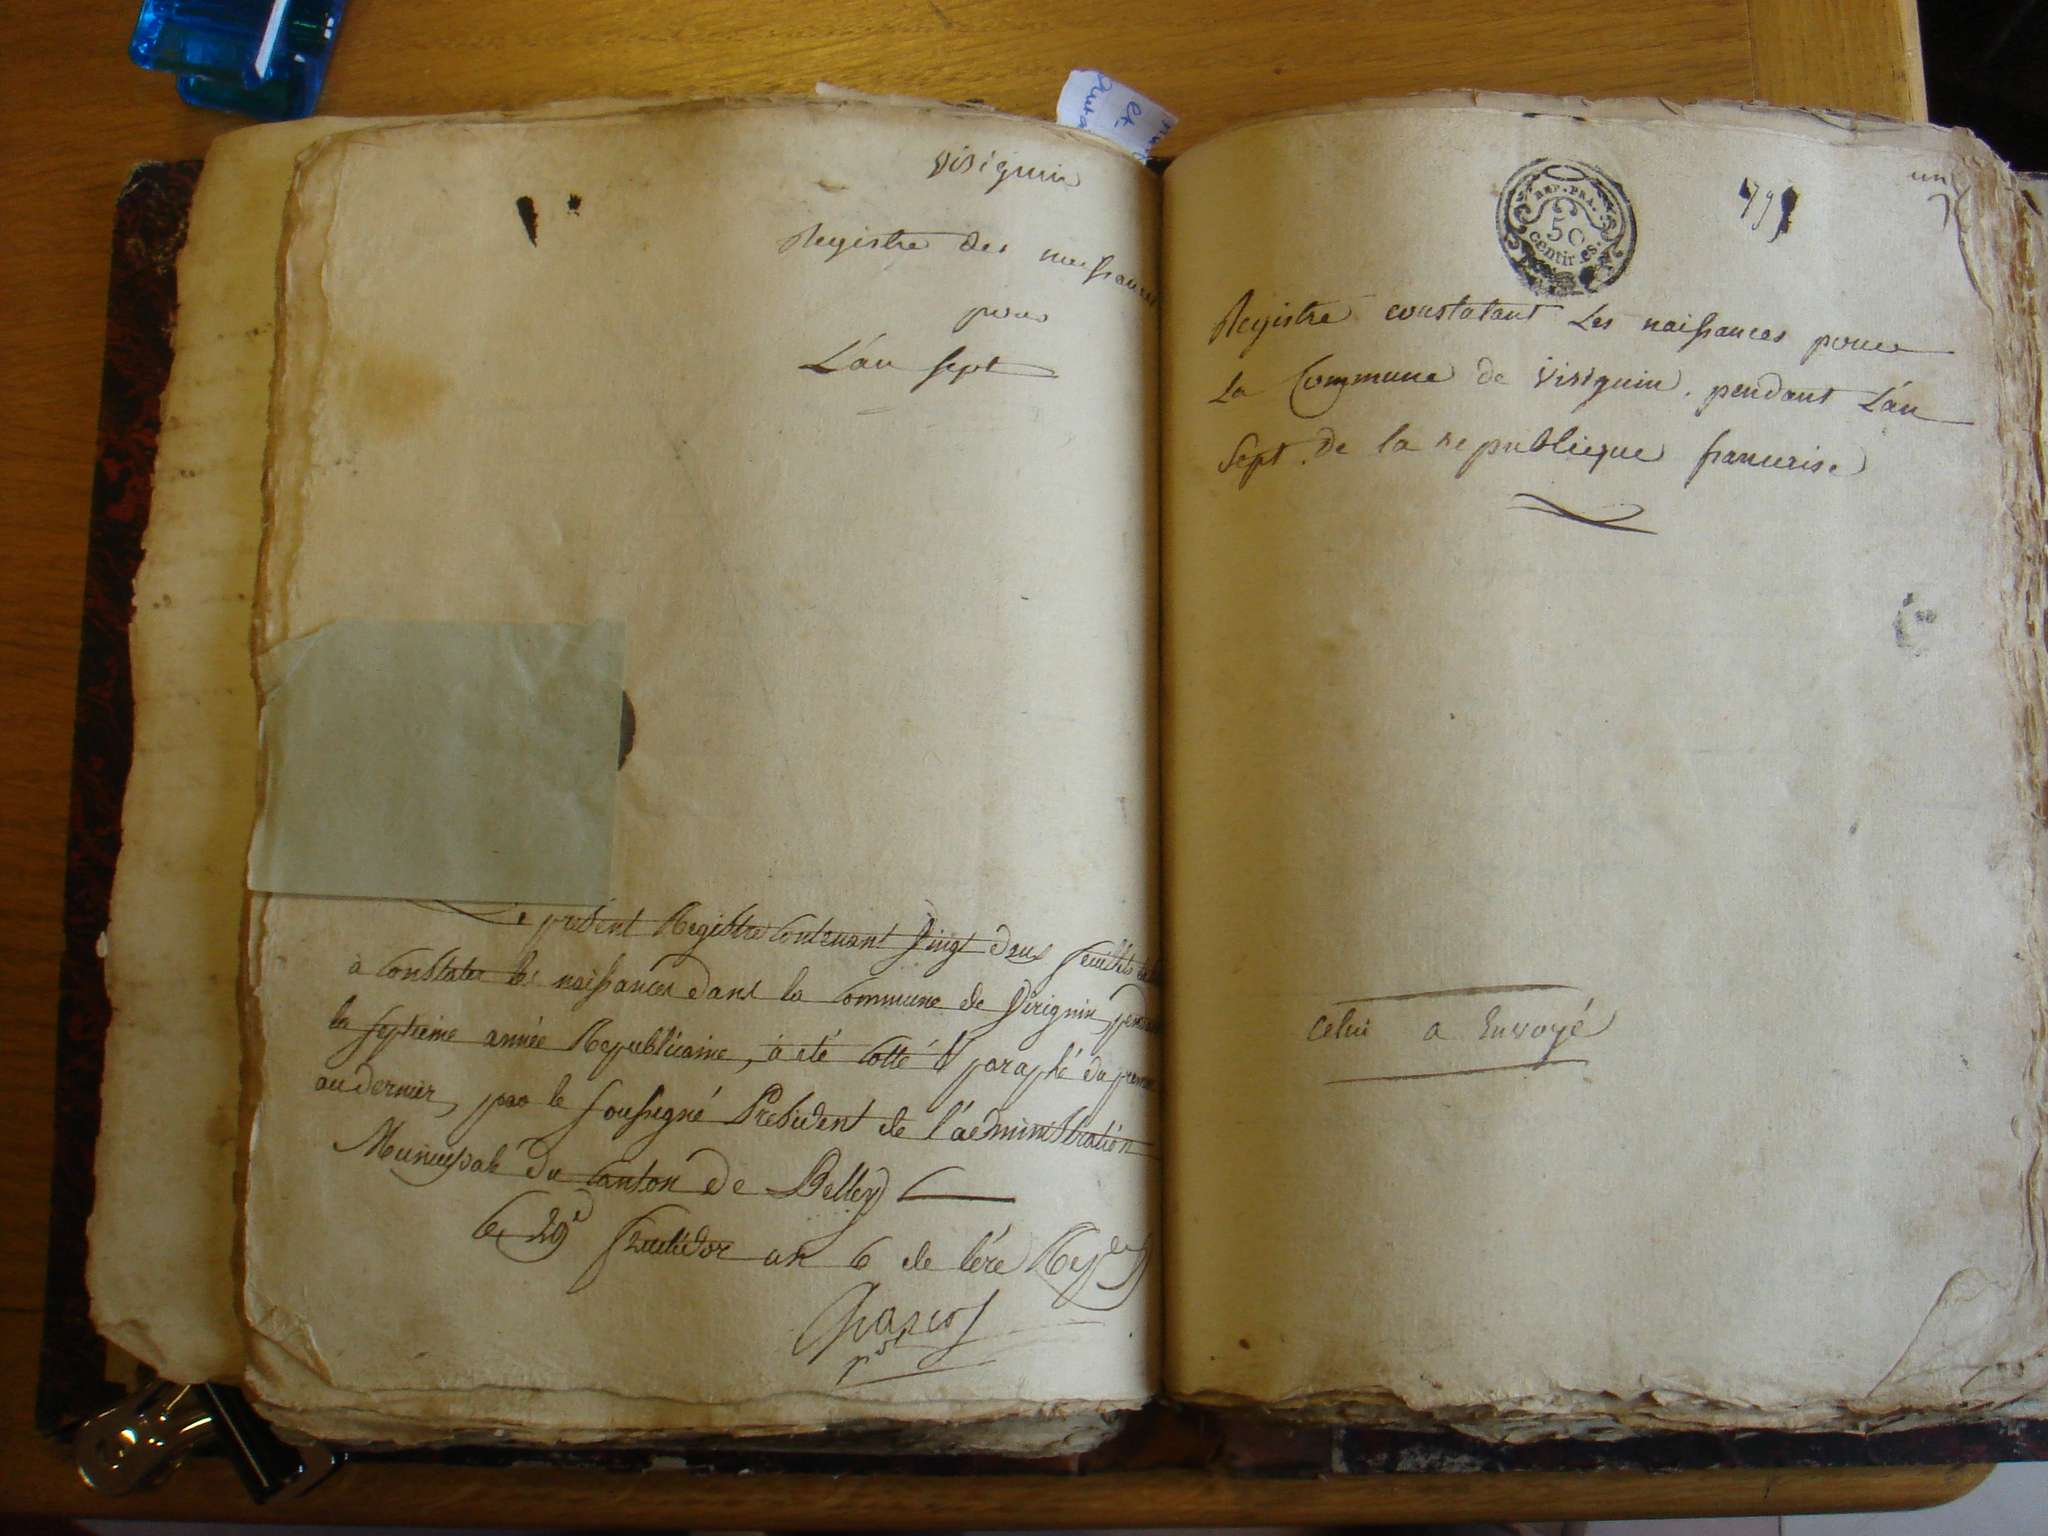 et
Virignin
Registre des naissances
pour
L'an sept
Le present Registre Contenant Vingt deux feuillets
a Constater les naissances dans la Commune de Virignin
la septieme année Republicaine, a été Cotté & paraphé du premier
au dernier, par le soussigné President de l'administration
Municipale du Canton de Belley
le 29 fructidor an 6 de l'ére
REP. FRA.
50
centimes.
un
Registre constatant Les naissances pour
La Commune de Virignin. pendant L'an
Sept. de la republique francaise
Celui a Envoyé